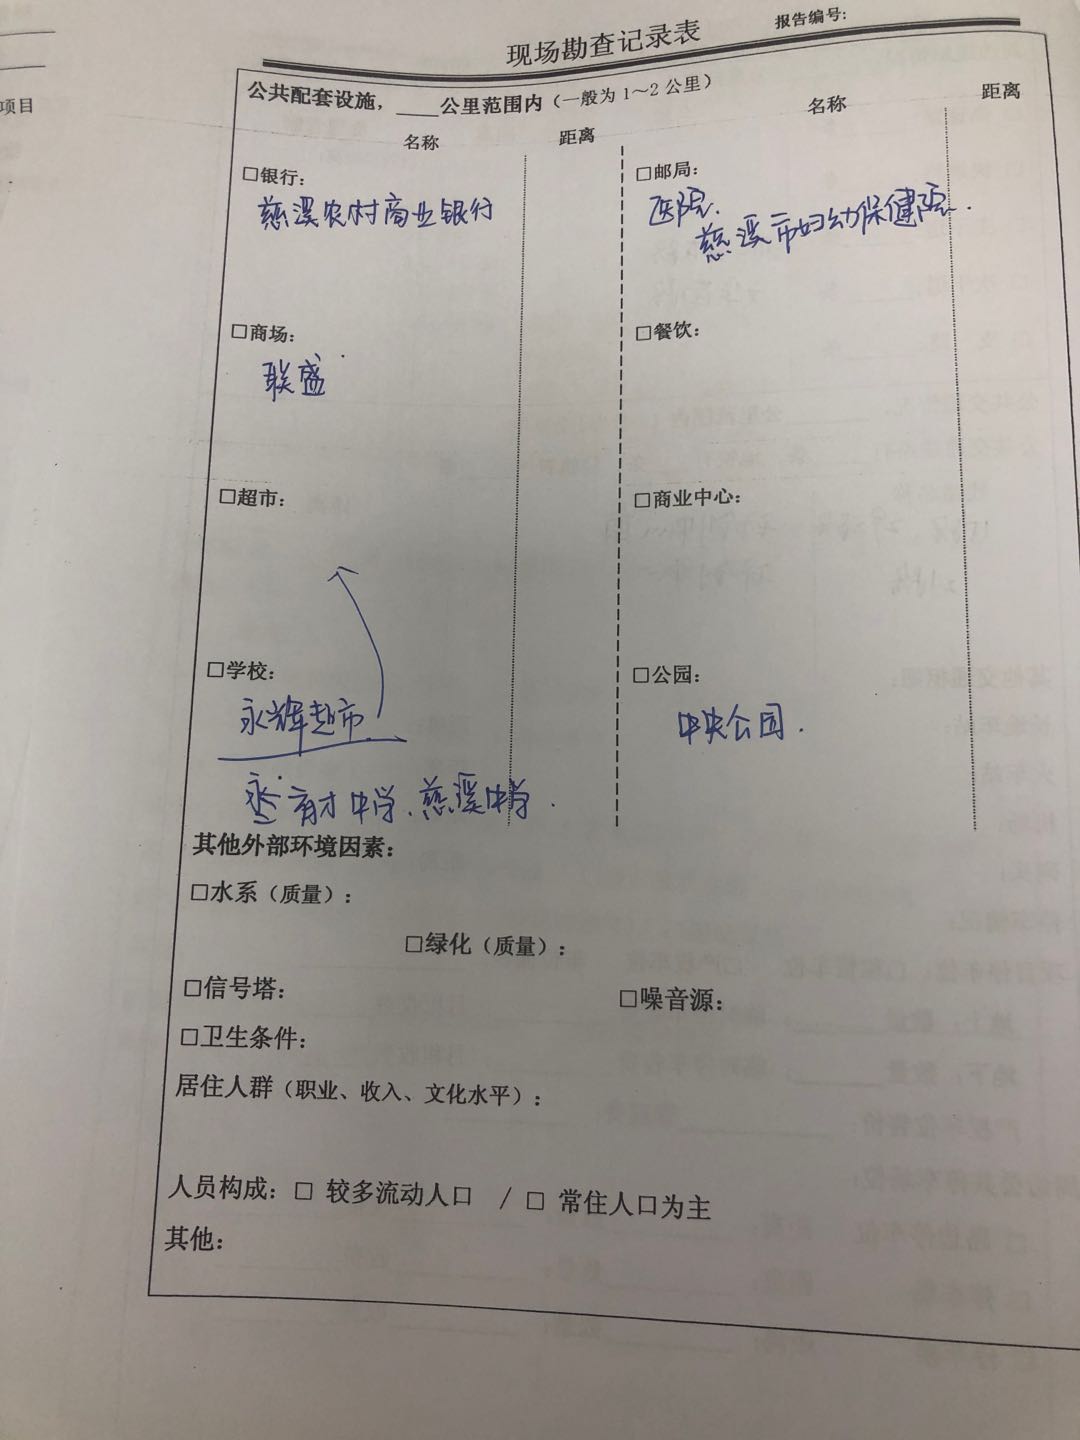 项目
现场勘查记录表
报告编号:
公共配套设施，____公里范围内（一般为1～2公里）
名称 距离 名称 距离
□银行: □邮局:
慈溪农村商业银行 医院.
慈溪市妇幼保健院.
□商场: □餐饮:
联盛
□超市: □商业中心:
□学校: □公园:
永辉超市. 中央公园.
育才中学、慈溪中学.
其他外部环境因素:
□水系（质量）:
□绿化（质量）:
□信号塔: □噪音源:
□卫生条件:
居住人群（职业、收入、文化水平）:
人员构成: □ 较多流动人口 / □ 常住人口为主
其他: